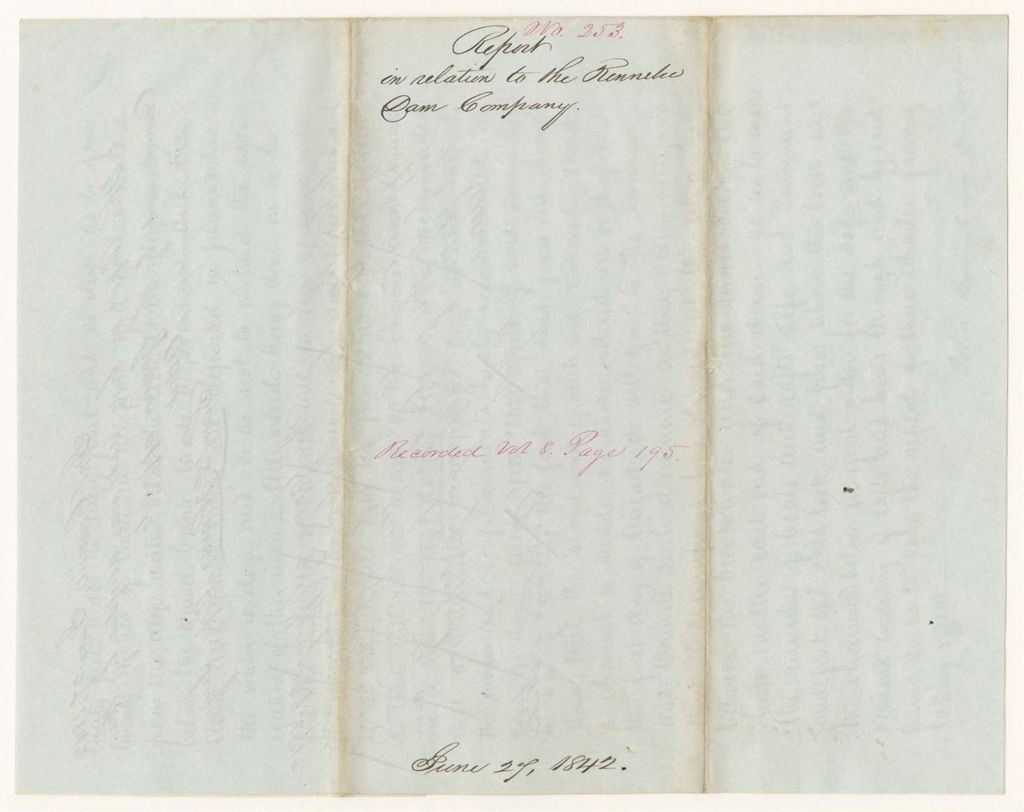 No. 253.
Report
in relation to the Kennebec
Dam Company.
Recorded Vol 8. Page 195.
June 27, 1842.